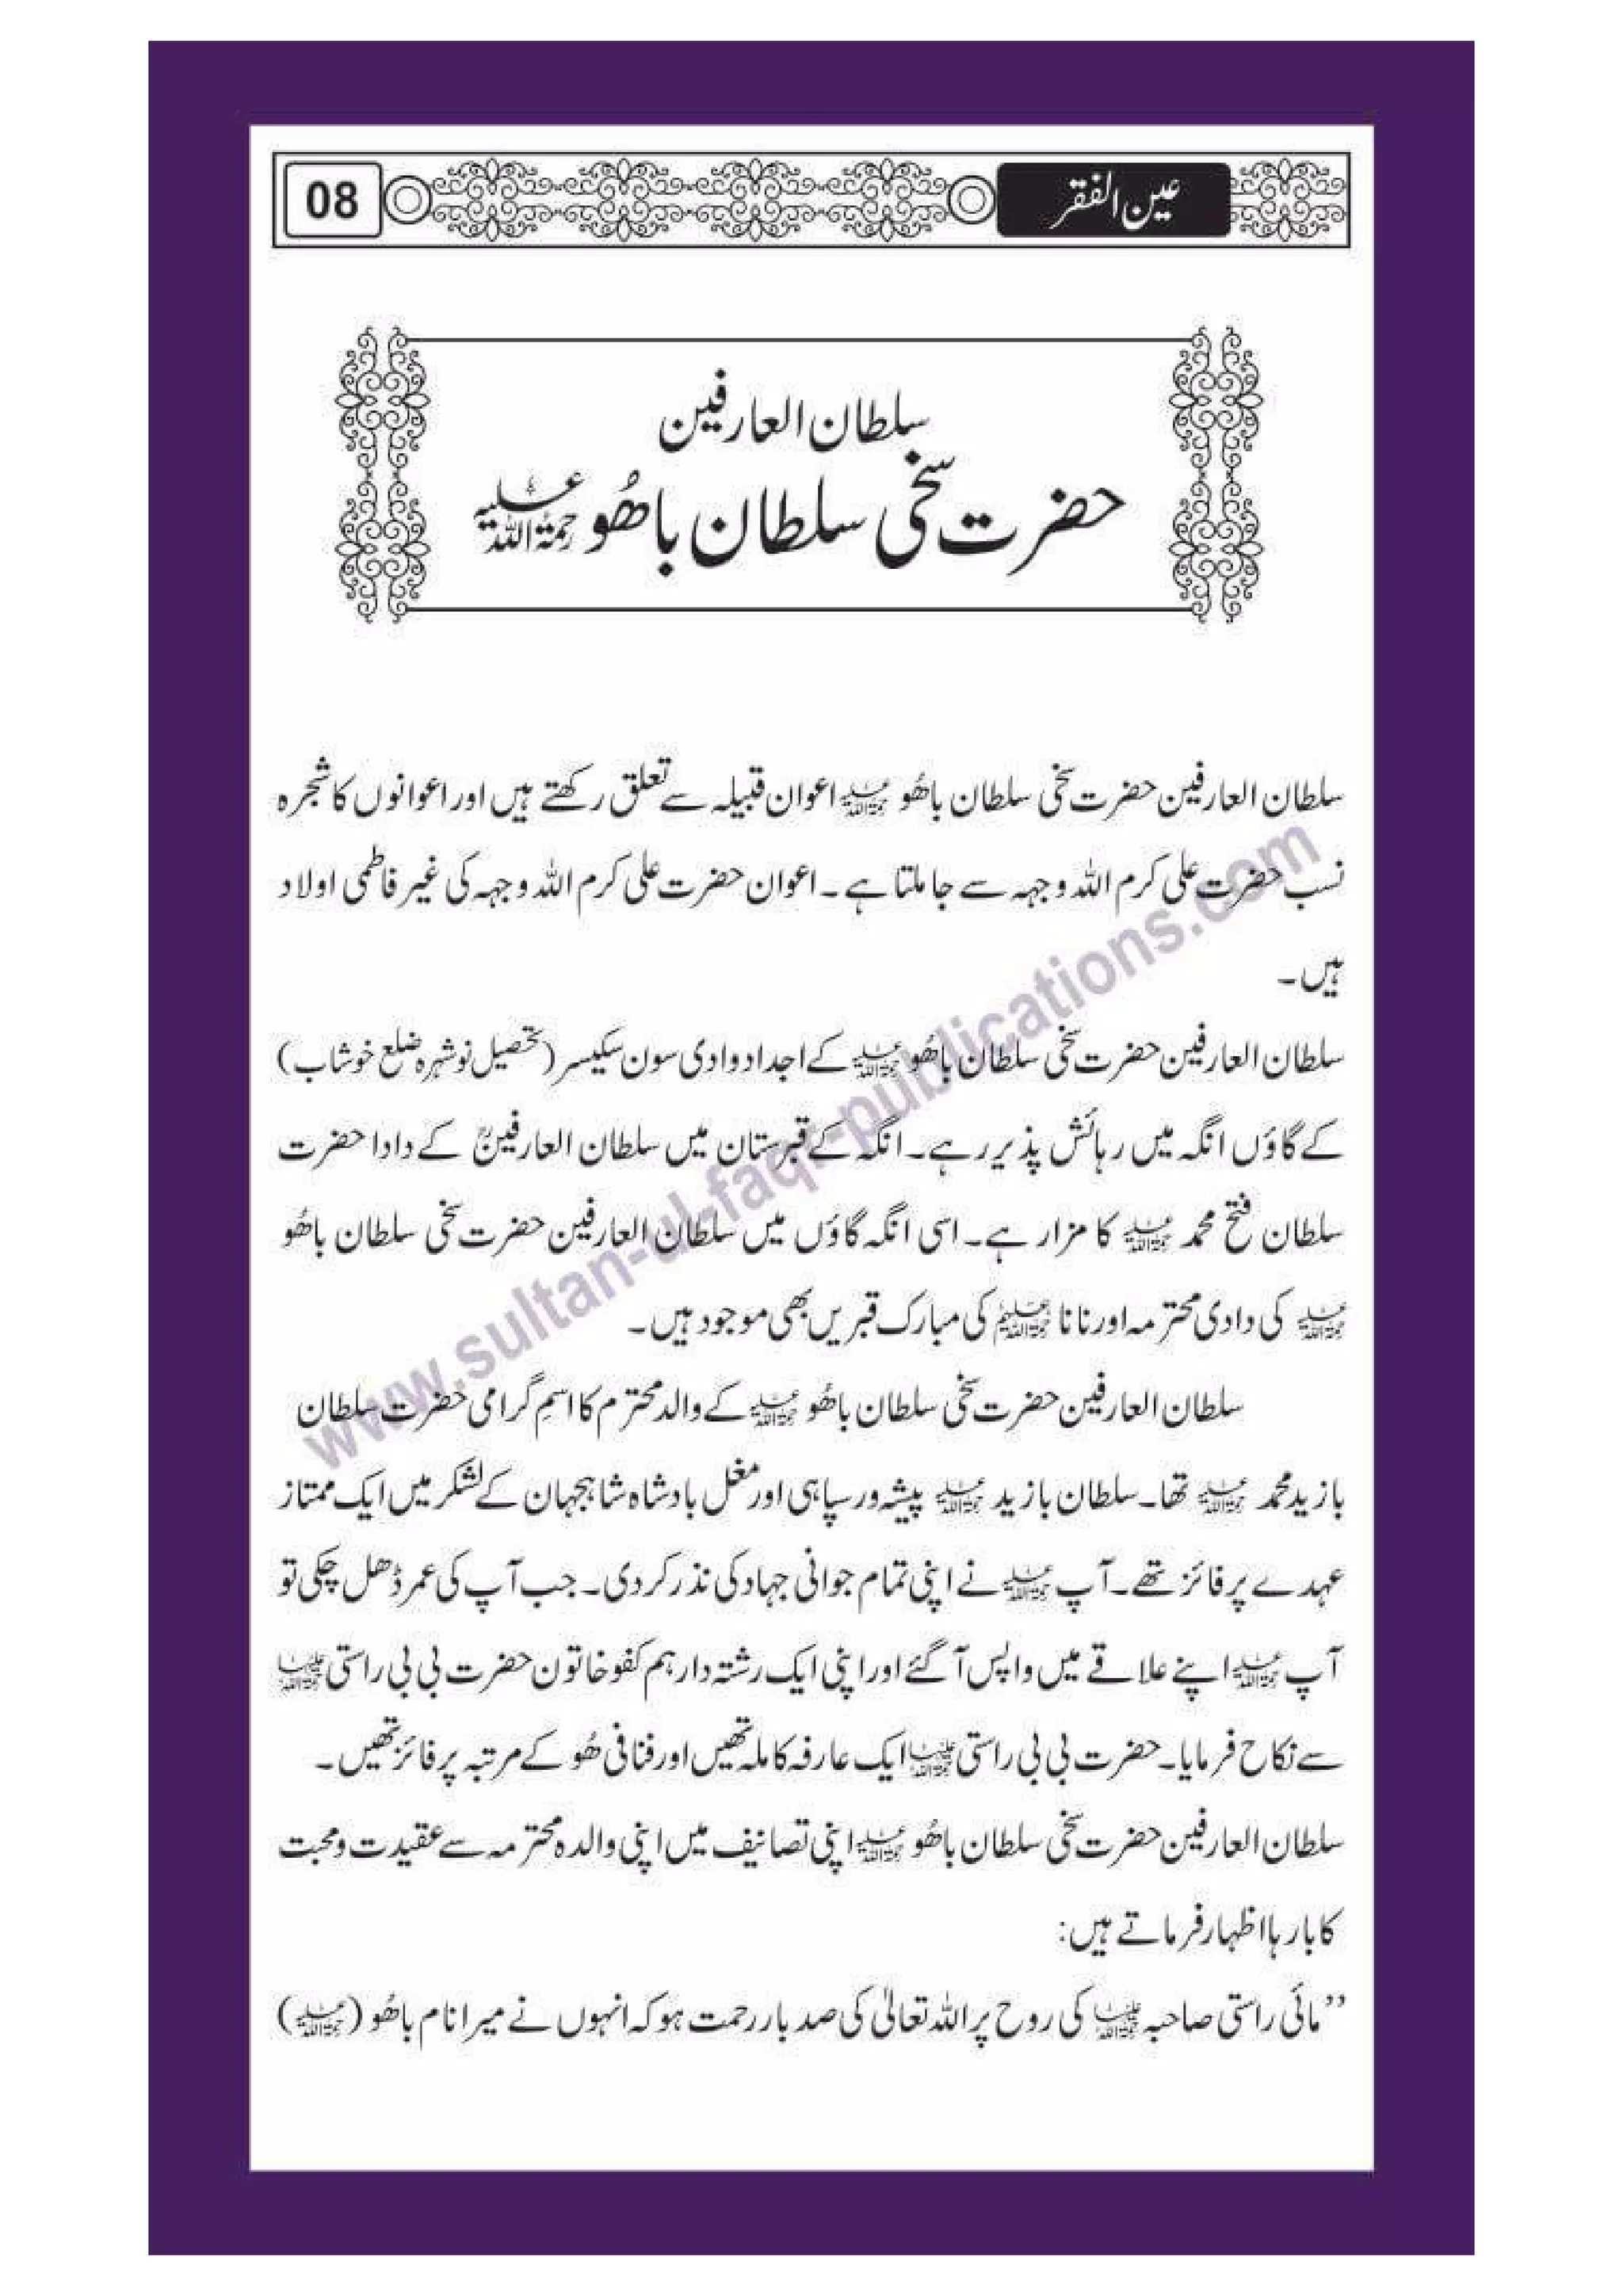 08
عین الفقر
سلطان العارفین
حضرت سخی سلطان باھُو رحمۃ اللہ علیہ
سلطان العارفین حضرت سخی سلطان باھُو رحمۃ اللہ علیہ اعوان قبیلہ سے تعلق رکھتے ہیں اور اعوانوں کا شجرہ
نسب حضرت علی کرم اللہ وجہہ سے جا ملتا ہے۔ اعوان حضرت علی کرم اللہ وجہہ کی غیر فاطمی اولاد
ہیں۔
سلطان العارفین حضرت سخی سلطان باھُو رحمۃ اللہ علیہ کے اجداد وادی سون سکیسر (تحصیل نوشہرہ ضلع خوشاب)
کے گاؤں انگہ میں رہائش پذیر رہے۔ انگہ کے قبرستان میں سلطان العارفینؒ کے دادا حضرت
سلطان فتح محمد رحمۃ اللہ علیہ کا مزار ہے۔ اسی انگہ گاؤں میں سلطان العارفین حضرت سخی سلطان باھُو
رحمۃ اللہ علیہ کی دادی محترمہ اور نانا رحمۃ اللہ علیہم کی مبارک قبریں بھی موجود ہیں۔
سلطان العارفین حضرت سخی سلطان باھُو رحمۃ اللہ علیہ کے والد محترم کا اسمِ گرامی حضرت سلطان
بازید محمد رحمۃ اللہ علیہ تھا۔ سلطان بازید رحمۃ اللہ علیہ پیشہ ور سپاہی اور مغل بادشاہ شاہجہان کے لشکر میں ایک ممتاز
عہدے پر فائز تھے۔ آپ رحمۃ اللہ علیہ نے اپنی تمام جوانی جہاد کی نذر کر دی۔ جب آپ کی عمر ڈھل چکی تو
آپ رحمۃ اللہ علیہ اپنے علاقے میں واپس آگئے اور اپنی ایک رشتہ دار ہم کفو خاتون حضرت بی بی راستی رحمۃ اللہ علیہا
سے نکاح فرمایا۔ حضرت بی بی راستی رحمۃ اللہ علیہا ایک عارفہ کاملہ تھیں اور فنا فی ھُو کے مرتبہ پر فائز تھیں۔
سلطان العارفین حضرت سخی سلطان باھُو رحمۃ اللہ علیہ اپنی تصانیف میں اپنی والدہ محترمہ سے عقیدت و محبت
کا بارہا اظہار فرماتے ہیں:
’’مائی راستی صاحبہ رحمۃ اللہ علیہا کی روح پر اللہ تعالیٰ کی صد بار رحمت ہو کہ انہوں نے میرا نام باھُو (رحمۃ اللہ علیہ)
www.sultan-ul-faqr-publications.com